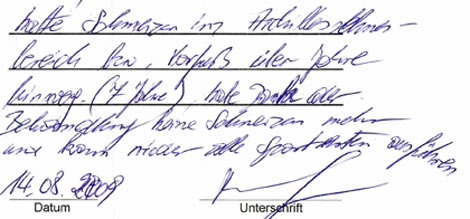 hatte Schmerzen im Achillessehnen-
bereich bzw. Vorfuß über Jahre
hinweg. (7 Jahre), habe dank der
Behandlung keine Schmerzen mehr
und kann wieder alle Sportarten ausführen
14.08.2009
Datum Unterschrift